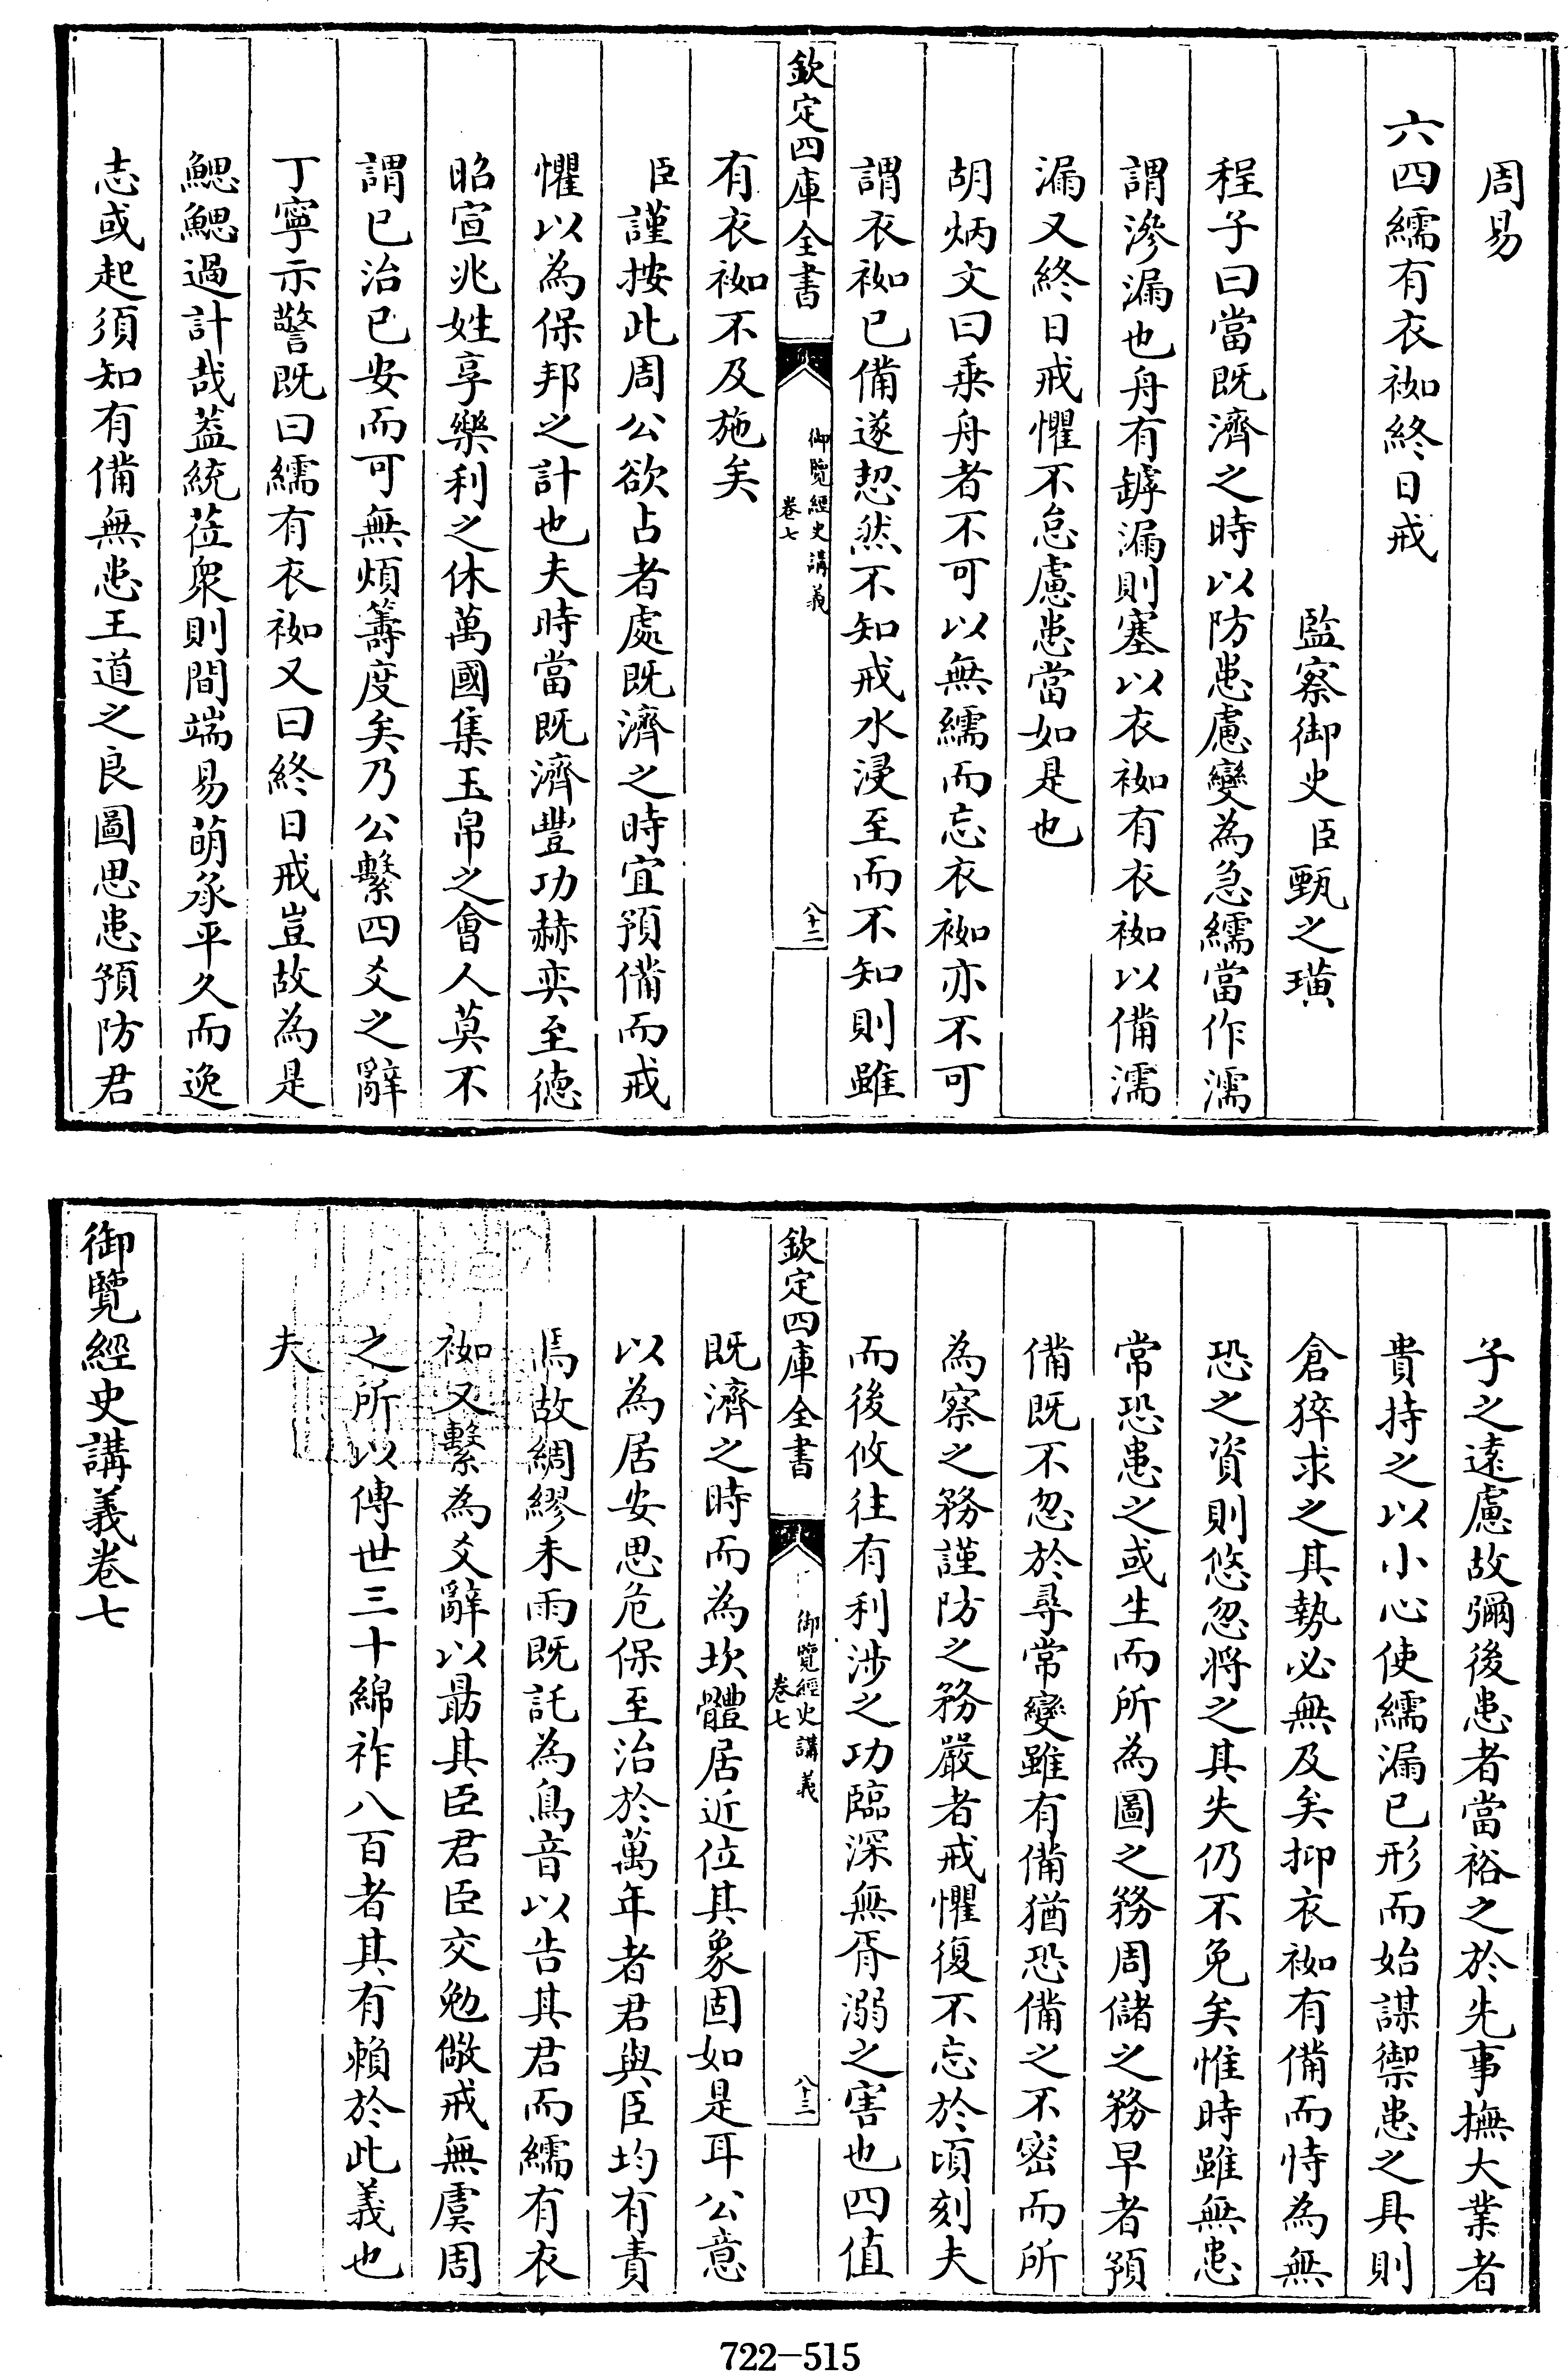 周易
六四繻有衣袽終日戒
監察御史臣甄之璜
程子曰當既濟之時以防患慮變為急繻當作濡
謂滲漏也舟有罅漏則塞以衣袽有衣袽以備濡
漏又終日戒懼不怠慮患當如是也
胡炳文曰乗舟者不可以無繻而忘衣袽亦不可
謂衣袽已備遂恝然不知戒水浸至而不知則雖
欽定四庫全書
御覽經史講義
卷七
八十二
有衣袽不及施矣
臣謹按此周公欲占者處既濟之時宜預備而戒
懼以為保邦之計也夫時當既濟豐功赫奕至徳
昭宣兆姓享樂利之休萬國集玉帛之會人莫不
謂已治已安而可無煩籌度矣乃公繫四爻之辭
丁寧示警既曰繻有衣袽又曰終日戒豈故為是
鰓鰓過計哉葢統莅衆則間端易萌承平久而逸
志或起須知有備無患王道之良圖思患預防君
子之遠慮故彌後患者當裕之於先事撫大業者
貴持之以小心使繻漏已形而始謀禦患之具則
倉猝求之其勢必無及矣抑衣袽有備而恃為無
恐之資則悠忽將之其失仍不免矣惟時雖無患
常恐患之或生而所為圖之務周儲之務早者預
備既不忽於尋常變雖有備猶恐備之不密而所
為察之務謹防之務嚴者戒懼復不忘於頃刻夫
而後攸往有利涉之功臨深無胥溺之害也四值
欽定四庫全書
御覽經史講義
卷七
八十三
既濟之時而為坎體居近位其象固如是耳公意
以為居安思危保至治於萬年者君與臣均有責
焉故綢繆未雨既託為鳥音以告其君而繻有衣
袽又繫為爻辭以勗其臣君臣交勉儆戒無虞周
之所以傳世三十綿祚八百者其有賴於此義也
夫
御覽經史講義卷七
722-515